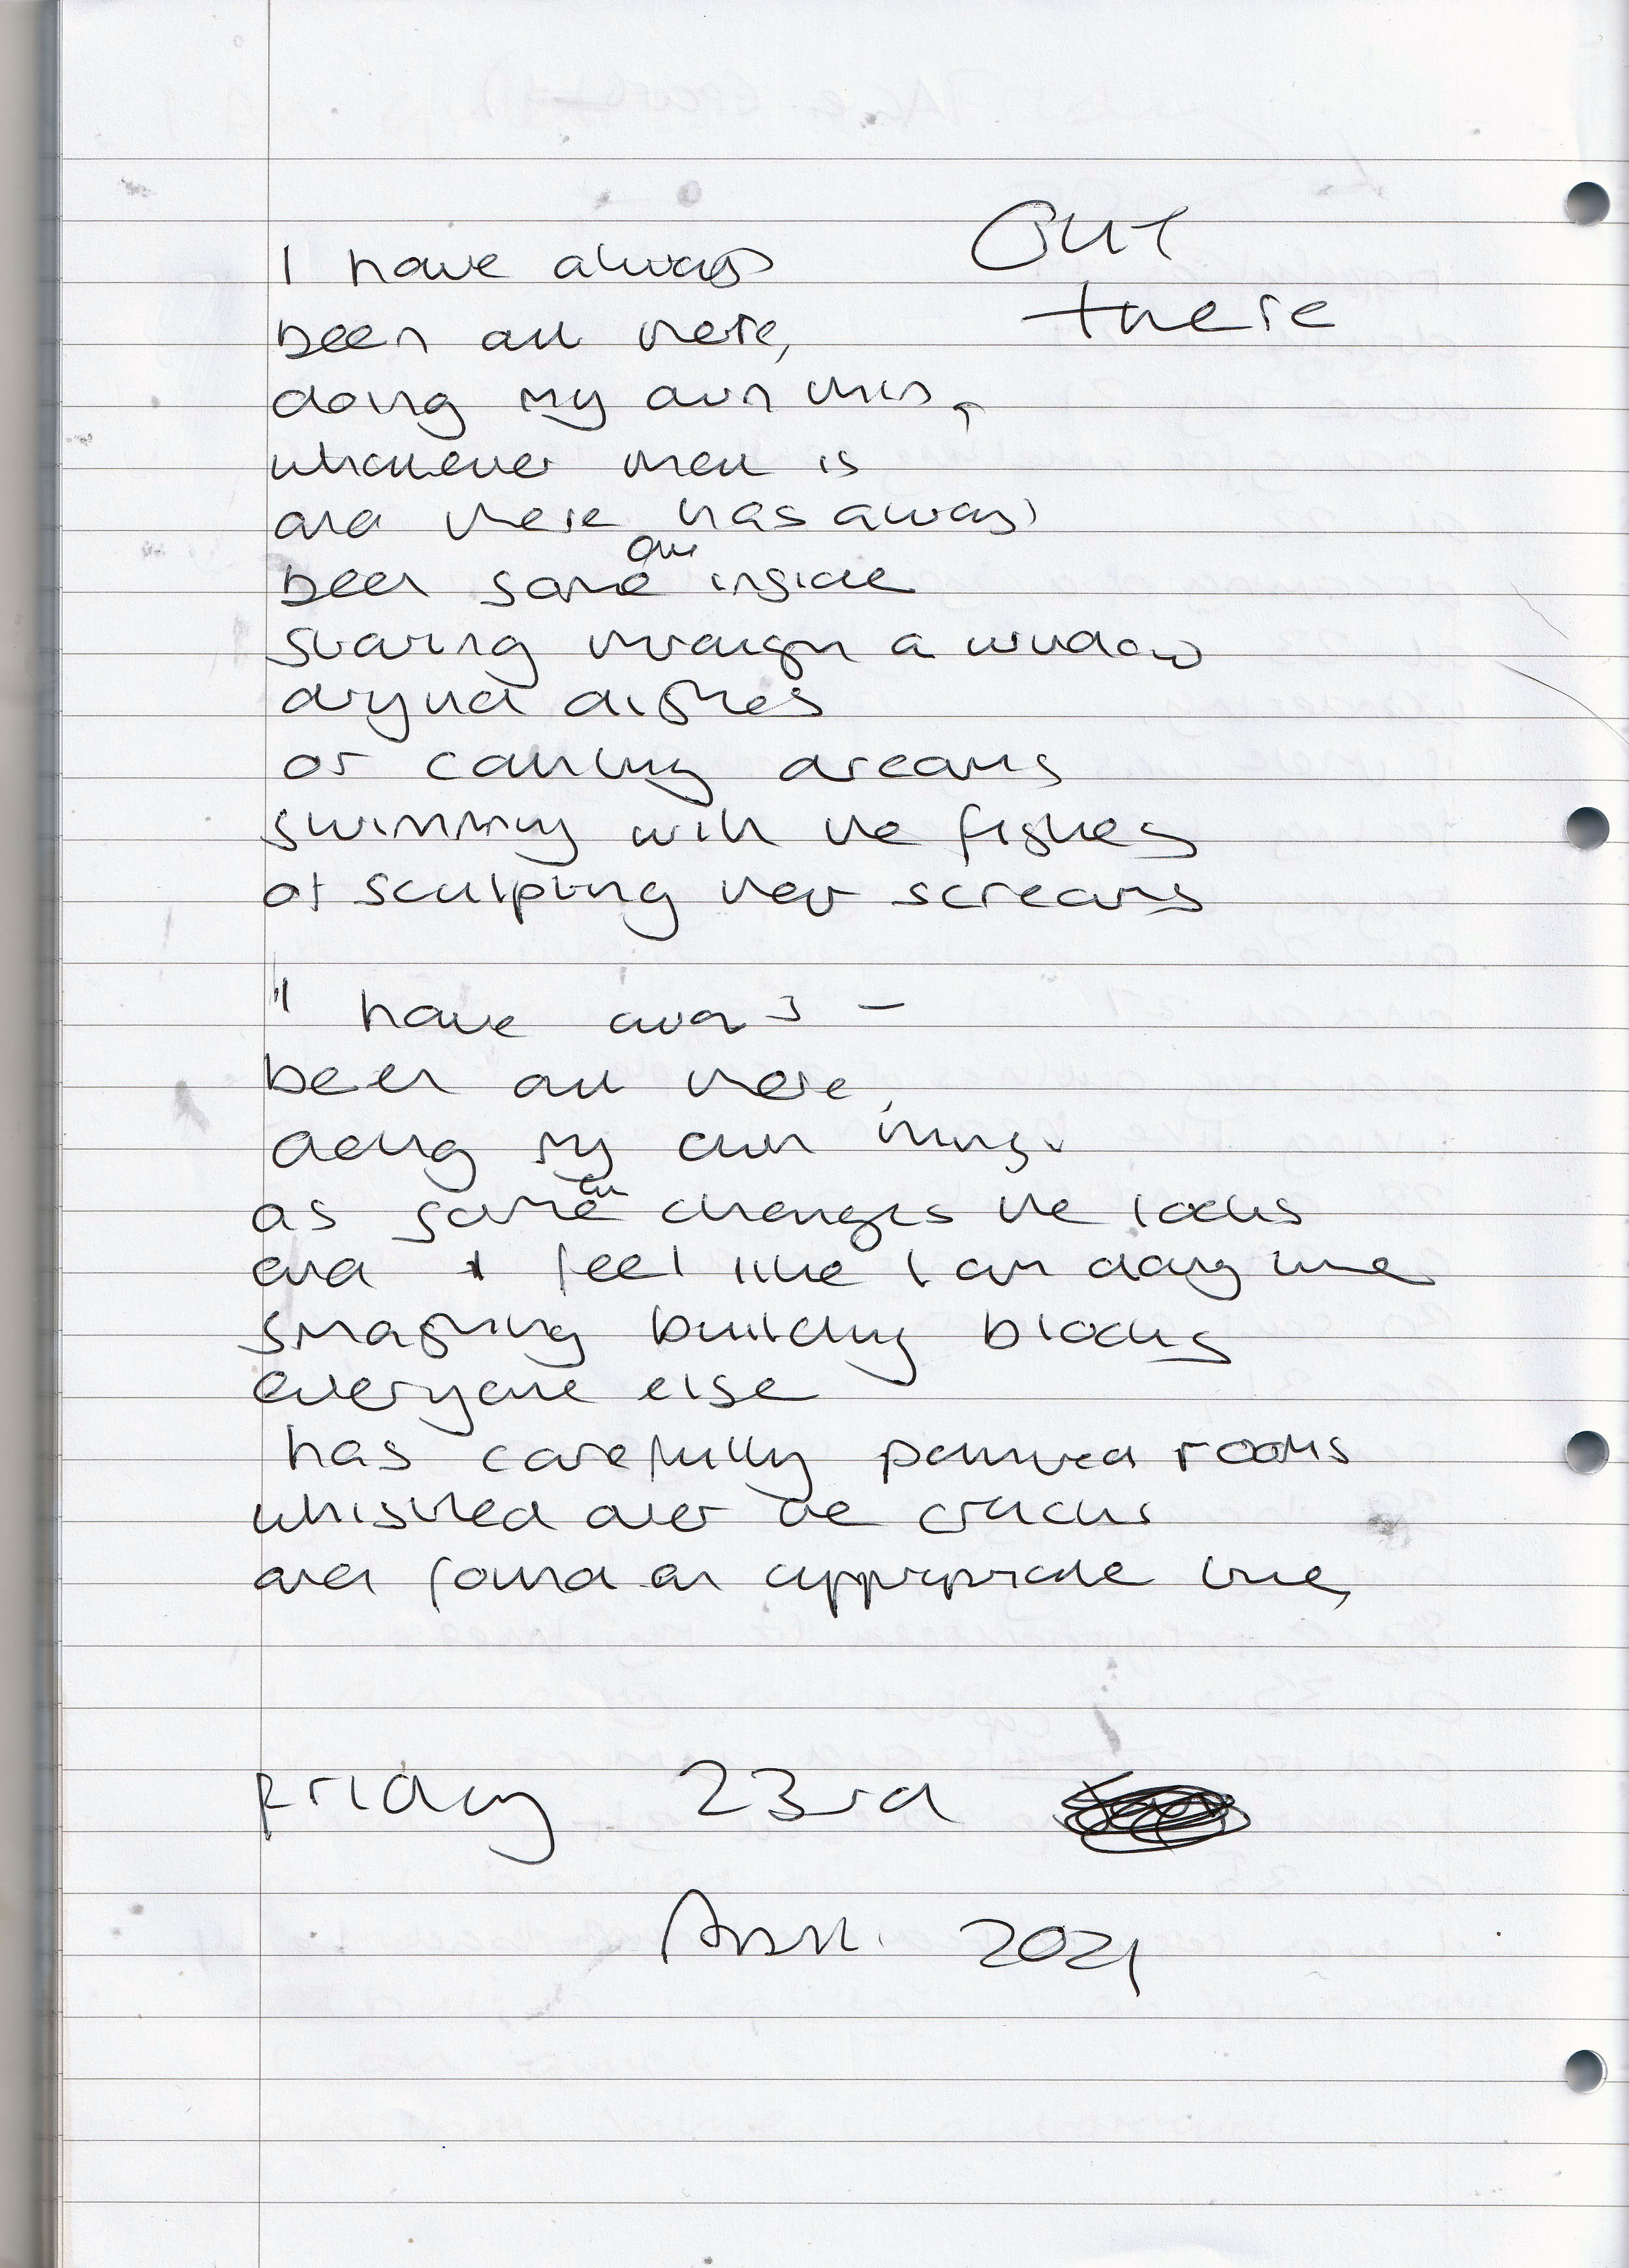 Out
there
I have always
been out there,
doing my own thing,
whatever that is
and there has always
been someone inside
staring through a window
drying dishes
or catching dreams
swimming with the fishes
or sculpting their screams
I have always -
been out there,
doing my own thing.
as someone changes the locks
and I feel like I am doing time
smashing building blocks
everyone else
has carefully painted rocks
whistled over the cracks
and found an appropriate line,
Friday 23rd
April 2021